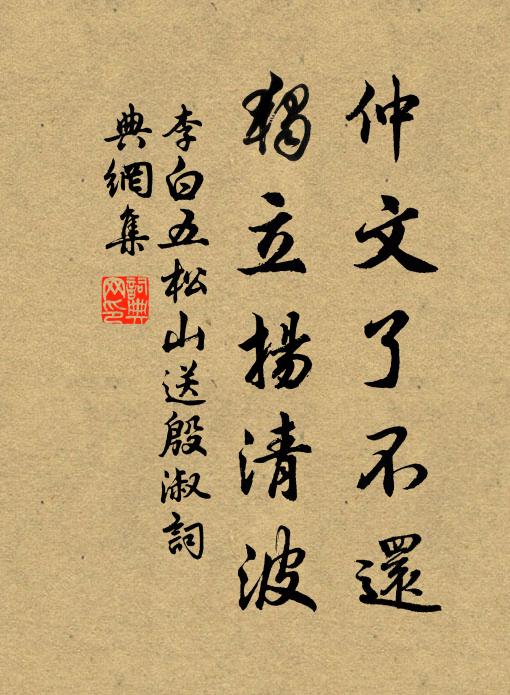 仲文了不還
獨立揚清波
李白五松山送殷淑詞
典網集
詞典網印